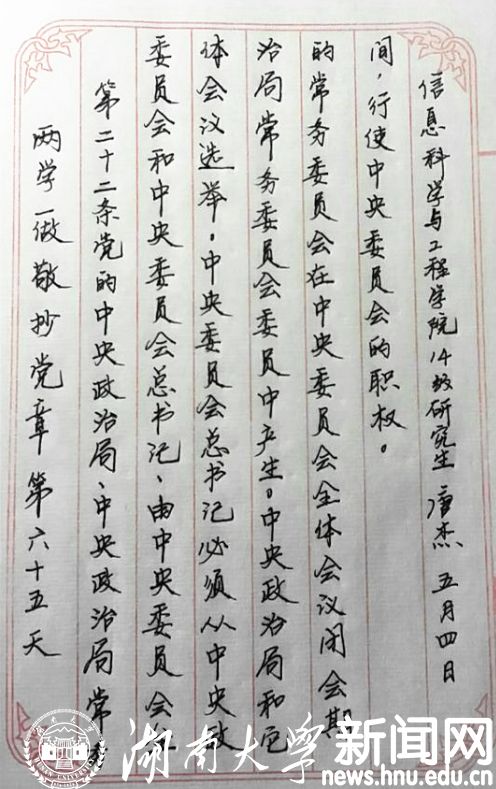 两学一做敬抄党章第六十五天
第二十二条党的中央政治局、中央政治局常
委员会和中央委员会总书记、由中央委员会全
体会议选举。中央委员会总书记必须从中央政
治局常务委员会委员中产生。中央政治局和它
的常务委员会在中央委员会全体会议闭会期
间，行使中央委员会的职权。
信息科学与工程学院14级研究生 唐杰 五月四日
湖南大学新闻网
news.hnu.edu.cn